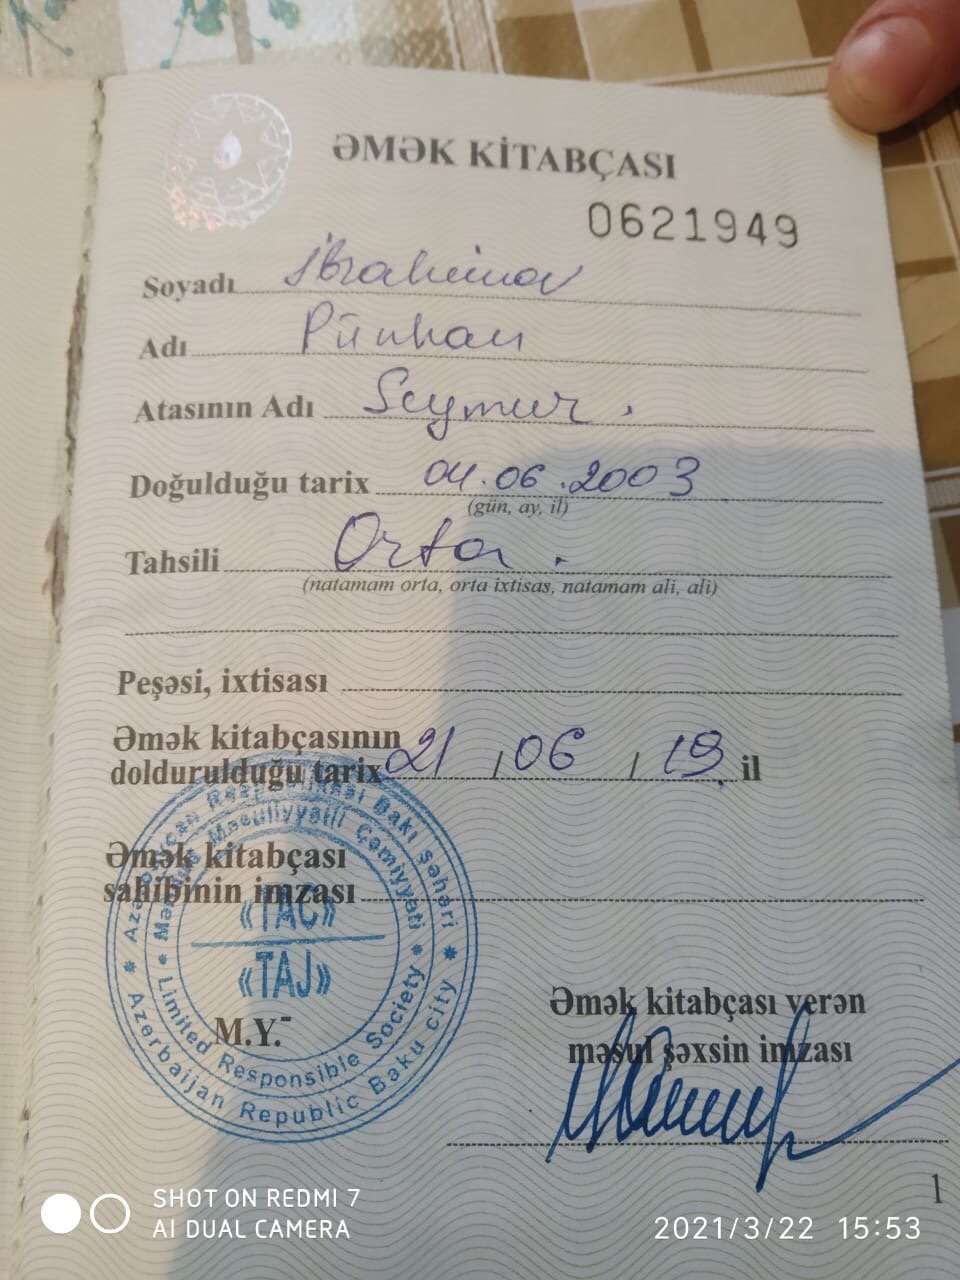 ƏMƏK KİTABÇASI
0621949
Soyadı İbrahimov
Adı Pünhan
Atasının Adı Seymur.
Doğulduğu tarix 04.06.2003
(gün, ay, il)
Tahsili Orta.
(natamam orta, orta ixtisas, natamam ali, ali)
Peşəsi, ixtisası
Əmək kitabçasının
doldurulduğu tarix 21/06/19 il
Əmək kitabçası
sahibinin imzası
Azərbaycan Respublikası Bakı Şəhəri
Məhdud Məsuliyyətli Cəmiyyəti
«TAC»
«TAJ»
M.Y.
Limited Responsible Society
Azerbaijan Republic Baku city
Əmək kitabçası verən
məsul şəxsin imzası
1
SHOT ON REDMI 7
AI DUAL CAMERA
2021/3/22 15:53